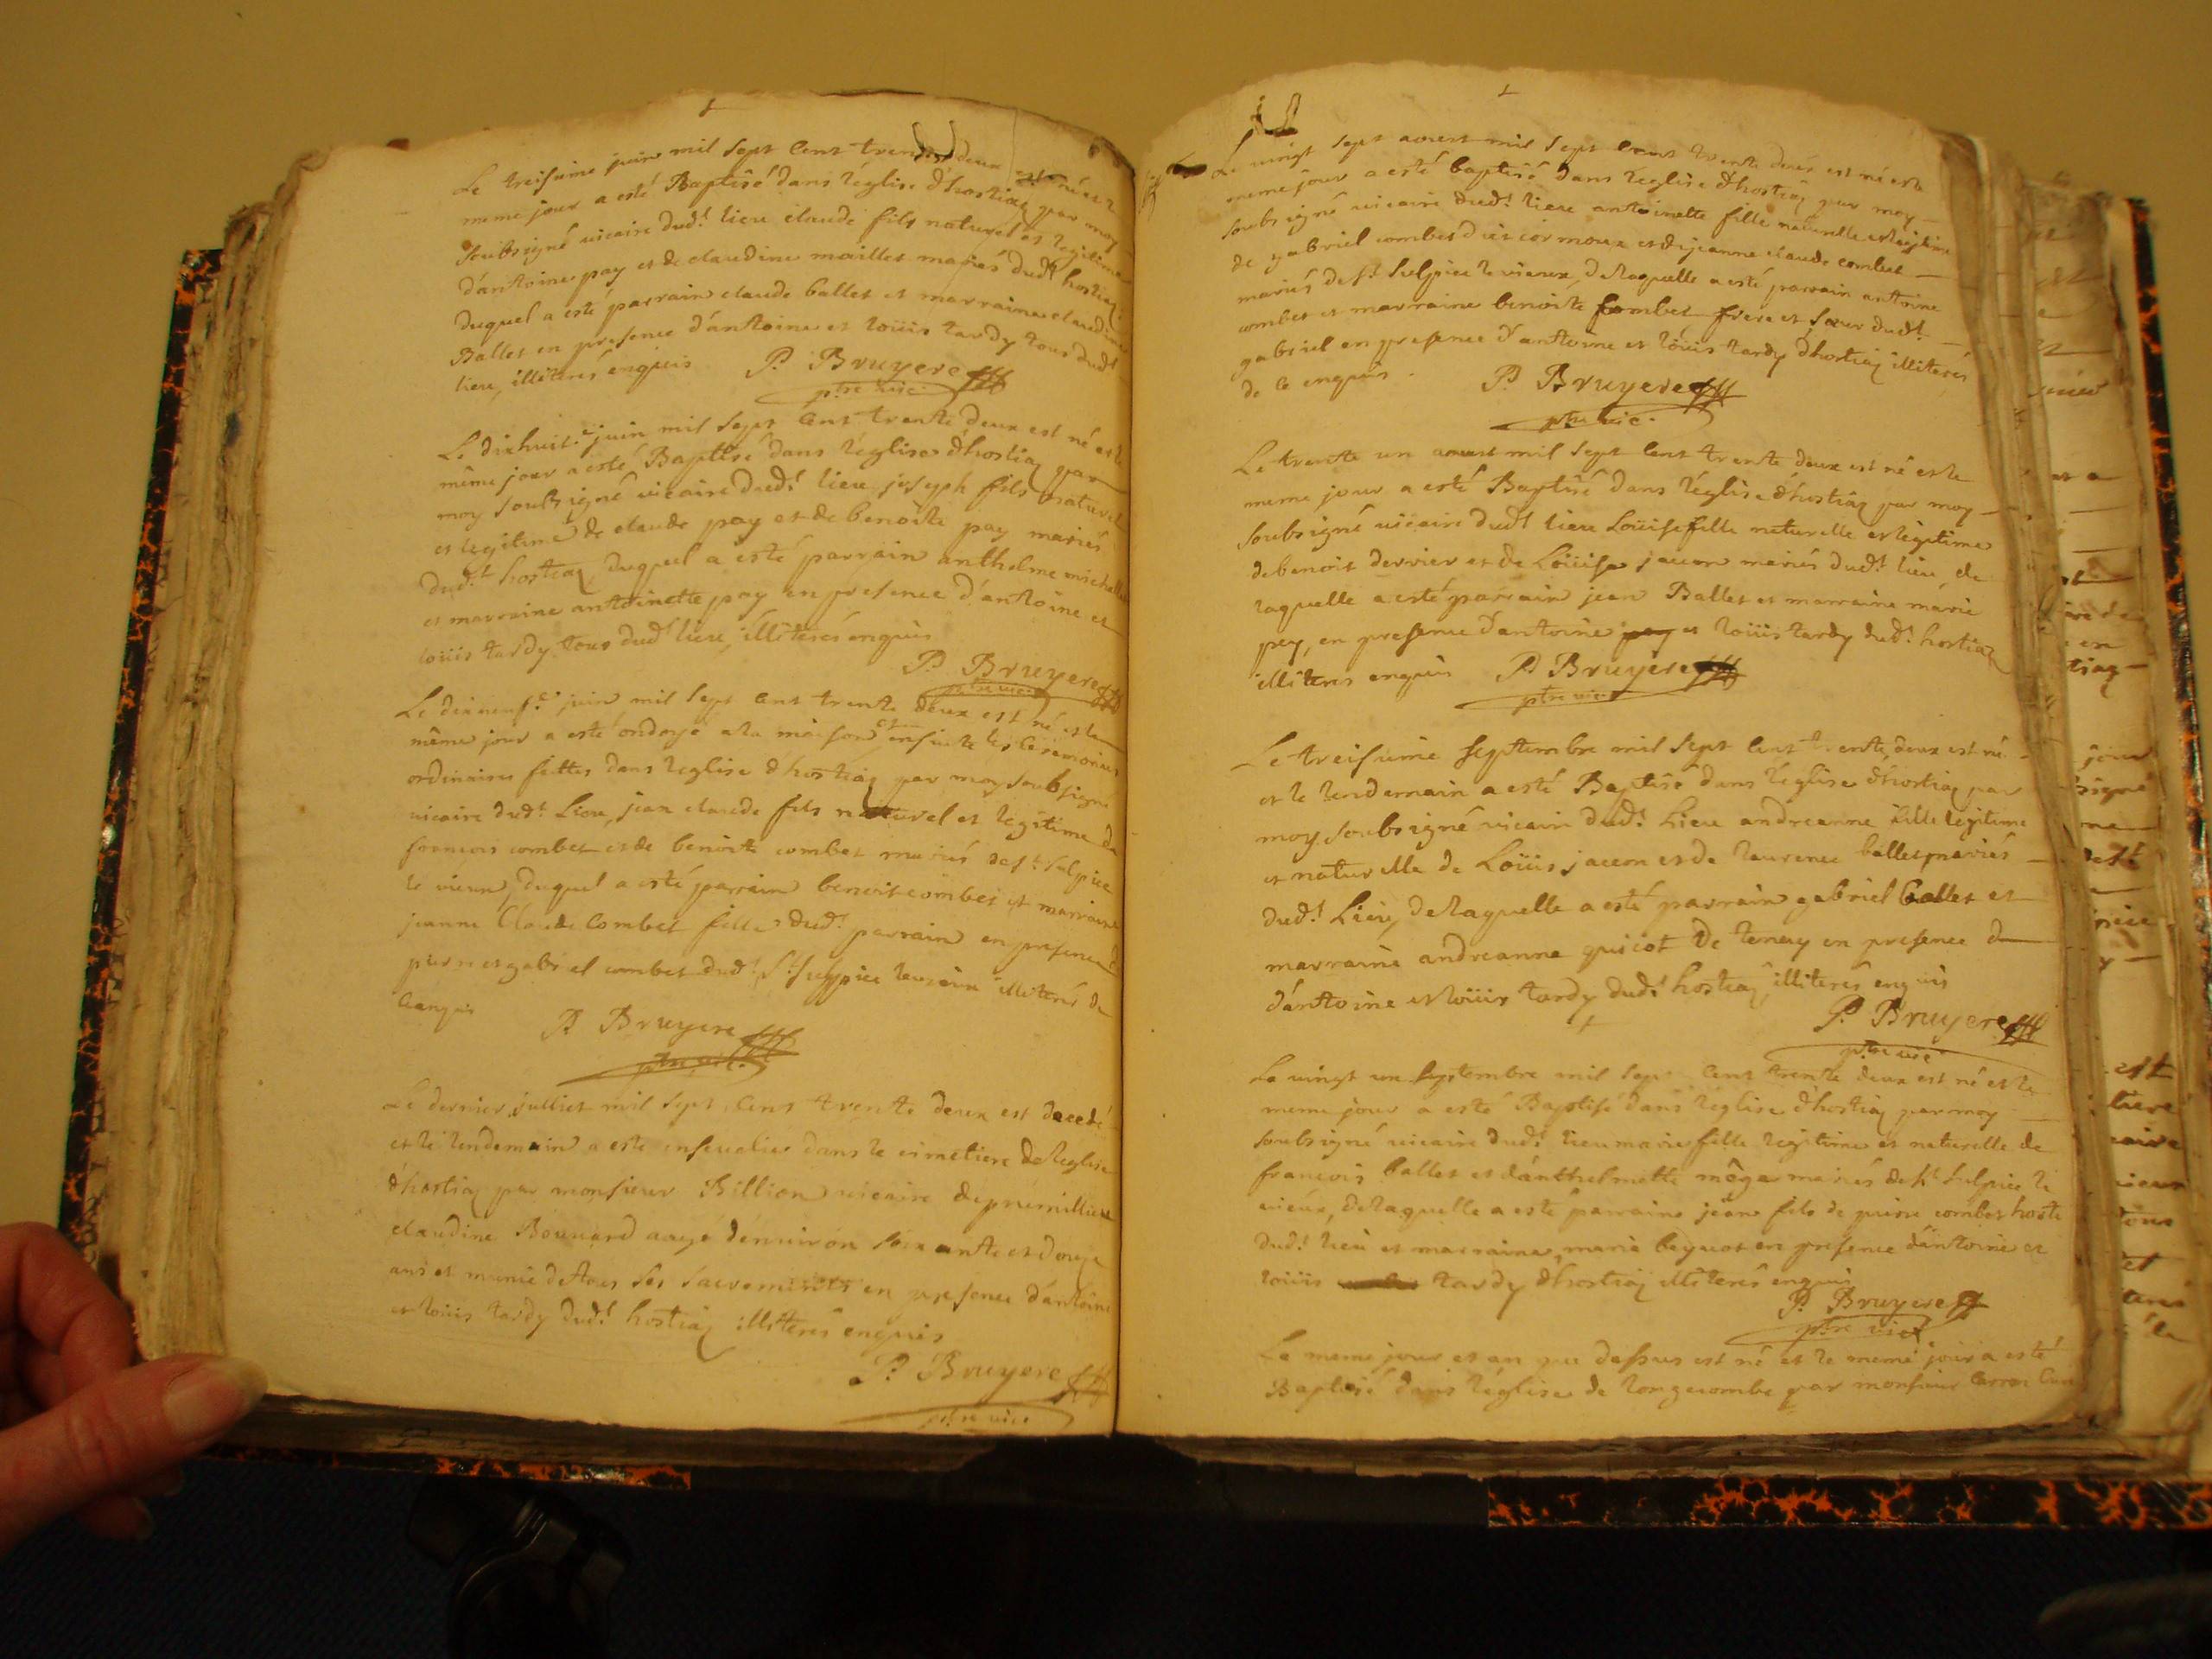 Le treisieme juin mil sept cent trente deux est né et le
meme jour a esté Baptisé dans l'église d'hostiaz par moy
soubsigné vicaire dud.t lieu claude fils naturel et legitime
d'antoine pay et de claudine maillet mariés dud.t hostiaz
duquel a esté parrain claude ballet et marraine claudine
Ballet en presence d'antoine et loüis tardy tous dud.t
lieu, illiterés enquis P. Bruyere
ptre vic.
Le dixhuit.e juin mil sept cent trente deux est né et le
même jour a esté Baptisé dans l'église d'hostiaz par
moy soubsigné vicaire dud.t lieu joseph fils naturel
et legitime de claude pay et de benoite pay mariés
dud.t hostiaz, duquel a esté parrain anthelme
et marraine antoinette pay en presence d'antoine et
loüis tardy tous dud.t lieu, illiterés enquis
P. Bruyere
ptre vic.
Le dixneuf.e juin mil sept cent trente deux est né et le
même jour a esté ondoyé a la maison et ensuite les ceremonies
ordinaires faittes dans l'eglise d'hostiaz par moy soubsigné
vicaire dud.t Lieu, jean claude fils naturel et legitime de
francois combet et de benoite combet mariés de s.t sulpice
le vieux, duquel a esté parrain benoit combet et marraine
jeanne Claude Combet fille dud.t parrain en presence de
pierre et gabriel combet dud.t S.t sulpice illiterés de
ce enquis
P. Bruyere
ptre vic.
Le dernier julliet mil sept cent trente deux est decedé
et le lendemain a esté ensevelier dans le cimetiere de l'eglise
d'hostiaz par monsieur Billion vicaire de premillieu
claudine Bonnard aagé d'environ soixante et douze
ans et munie de tous ses sacrements en presence d'antoine
et loüis tardy dud.t hostiaz illiterés enquis
P. Bruyere
ptre vic.
Le vingt sept aoust mil sept cent trente deux est né et le
meme jour a esté baptisé dans l'eglise d'hostiaz par moy
soubsigné vicaire dud.t lieu antoinette fille naturelle et legitime
de gabriel combet dit cormoux et de jeanne claude combet
mariés de s.t sulpice le vieux, de laquelle a esté parrain antoine
combet et marraine benoite combet frere et sœur dud.t
gabriel en presence d'antoine et loüis tardy d'hostiaz illiterés
de ce enquis. P. Bruyere
ptre vic.
Le trente un aoust mil sept cent trente deux est né et le
meme jour a esté Baptisé dans l'église d'hostiaz par moy
soubsigné vicaire dud.t lieu Loüise fille naturelle et legitime
de benoit dervier et de Loüise jacon mariés dud.t lieu, de
laquelle a esté parrain jean Ballet et marraine marie
pey, en presence d'antoine pay et loüis tardy dud.t hostiaz
illiterés enquis P. Bruyere
ptre vic.
Le treisieme septembre mil sept cent trente deux est né
et le lendemain a esté Baptisé dans l'église d'hostiaz par
moy soubsigné vicaire dud.t Lieu andreanne fille legitime
et naturelle de Loüis jacon et de laurence ballet mariés
dud.t Lieu, de laquelle a esté parrain gabriel ballet et
marraine andreanne guicot de tenay en presence d
d'antoine et loüis tardy dud.t hostiaz, illiterés enquis
P. Bruyere
ptre vic.
Le vingt un septembre mil sept cent trente deux est né et le
meme jour a esté Baptisé dans l'église d'hostiaz par moy
soubsigné vicaire dud.t lieu marie fille legitime et naturelle de
françois ballet et d'anthelmette môge mariés de s.t sulpice le
vieux, de laquelle a esté parrains jean fils de pierre combet hoste
dud.t lieu et marraine marie beguet en presence d'antoine et
loüis tardy d'hostiaz illiterés enquis
P. Bruyere
ptre vic.
Le meme jour et an que dessus est né et le meme jour a esté
Baptisé dans l'église de longecombe par monsieur Carron Curé